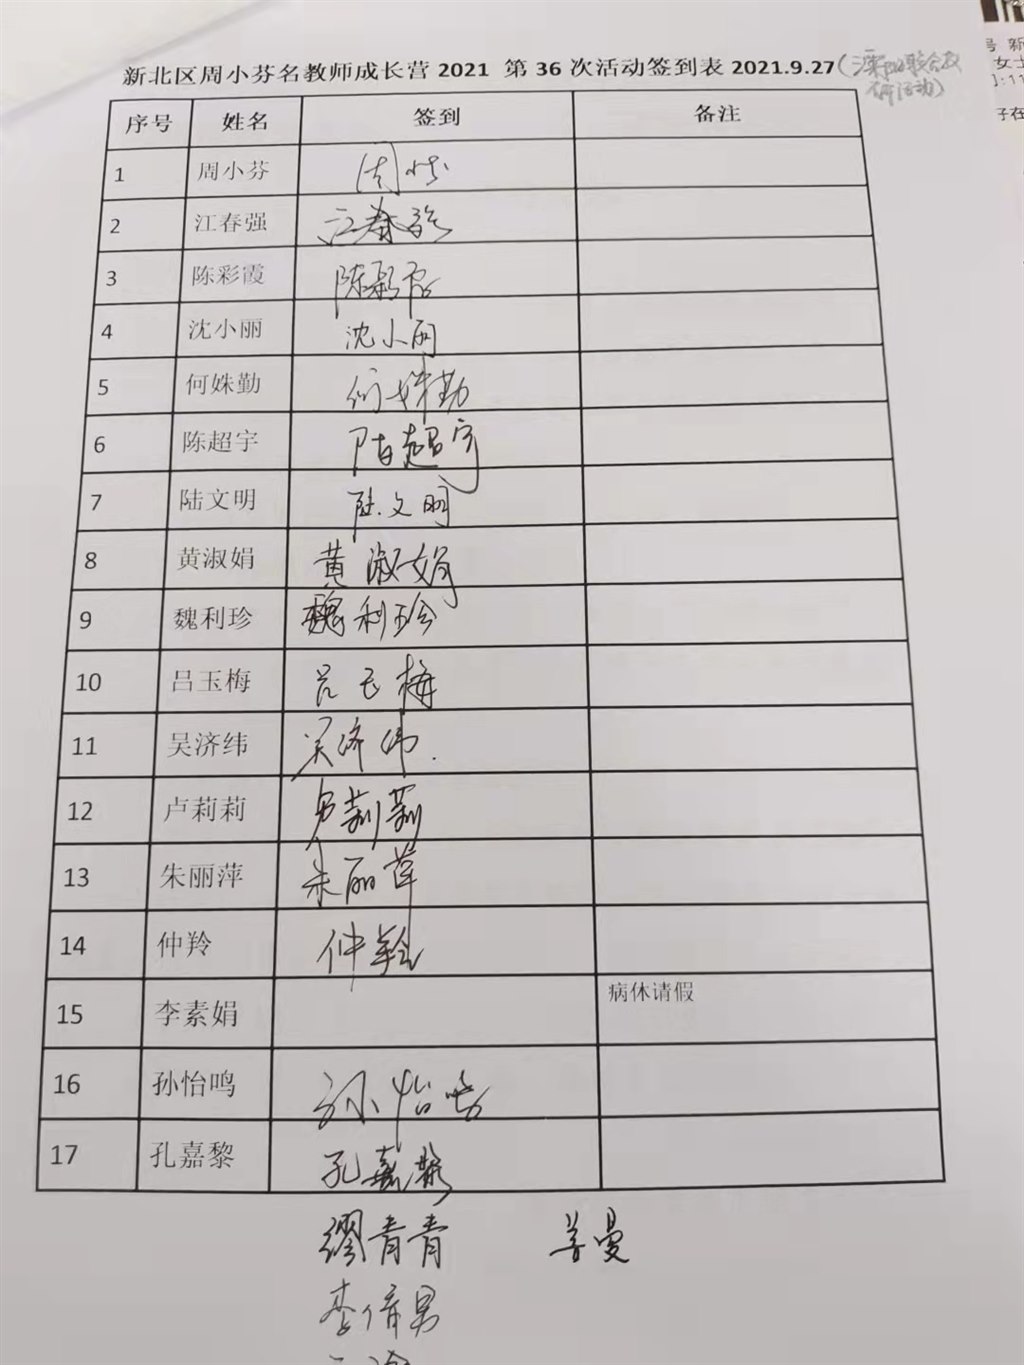 新北区周小芬名教师成长营 2021 第 36 次活动签到表 2021.9.27
序号 姓名 签到 备注
1 周小芬
2 江春强 江春强
3 陈彩霞 陈彩霞
4 沈小丽 沈小丽
5 何姝勤 何姝勤
6 陈超宇 陈超宇
7 陆文明 陆文明
8 黄淑娟 黄淑娟
9 魏利珍 魏利珍
10 吕玉梅 吕玉梅
11 吴济纬 吴济纬
12 卢莉莉 卢莉莉
13 朱丽萍 朱丽萍
14 仲羚 仲羚
15 李素娟 病休请假
16 孙怡鸣 孙怡鸣
17 孔嘉黎 孔嘉黎
缪青青
号 新
女士
子在